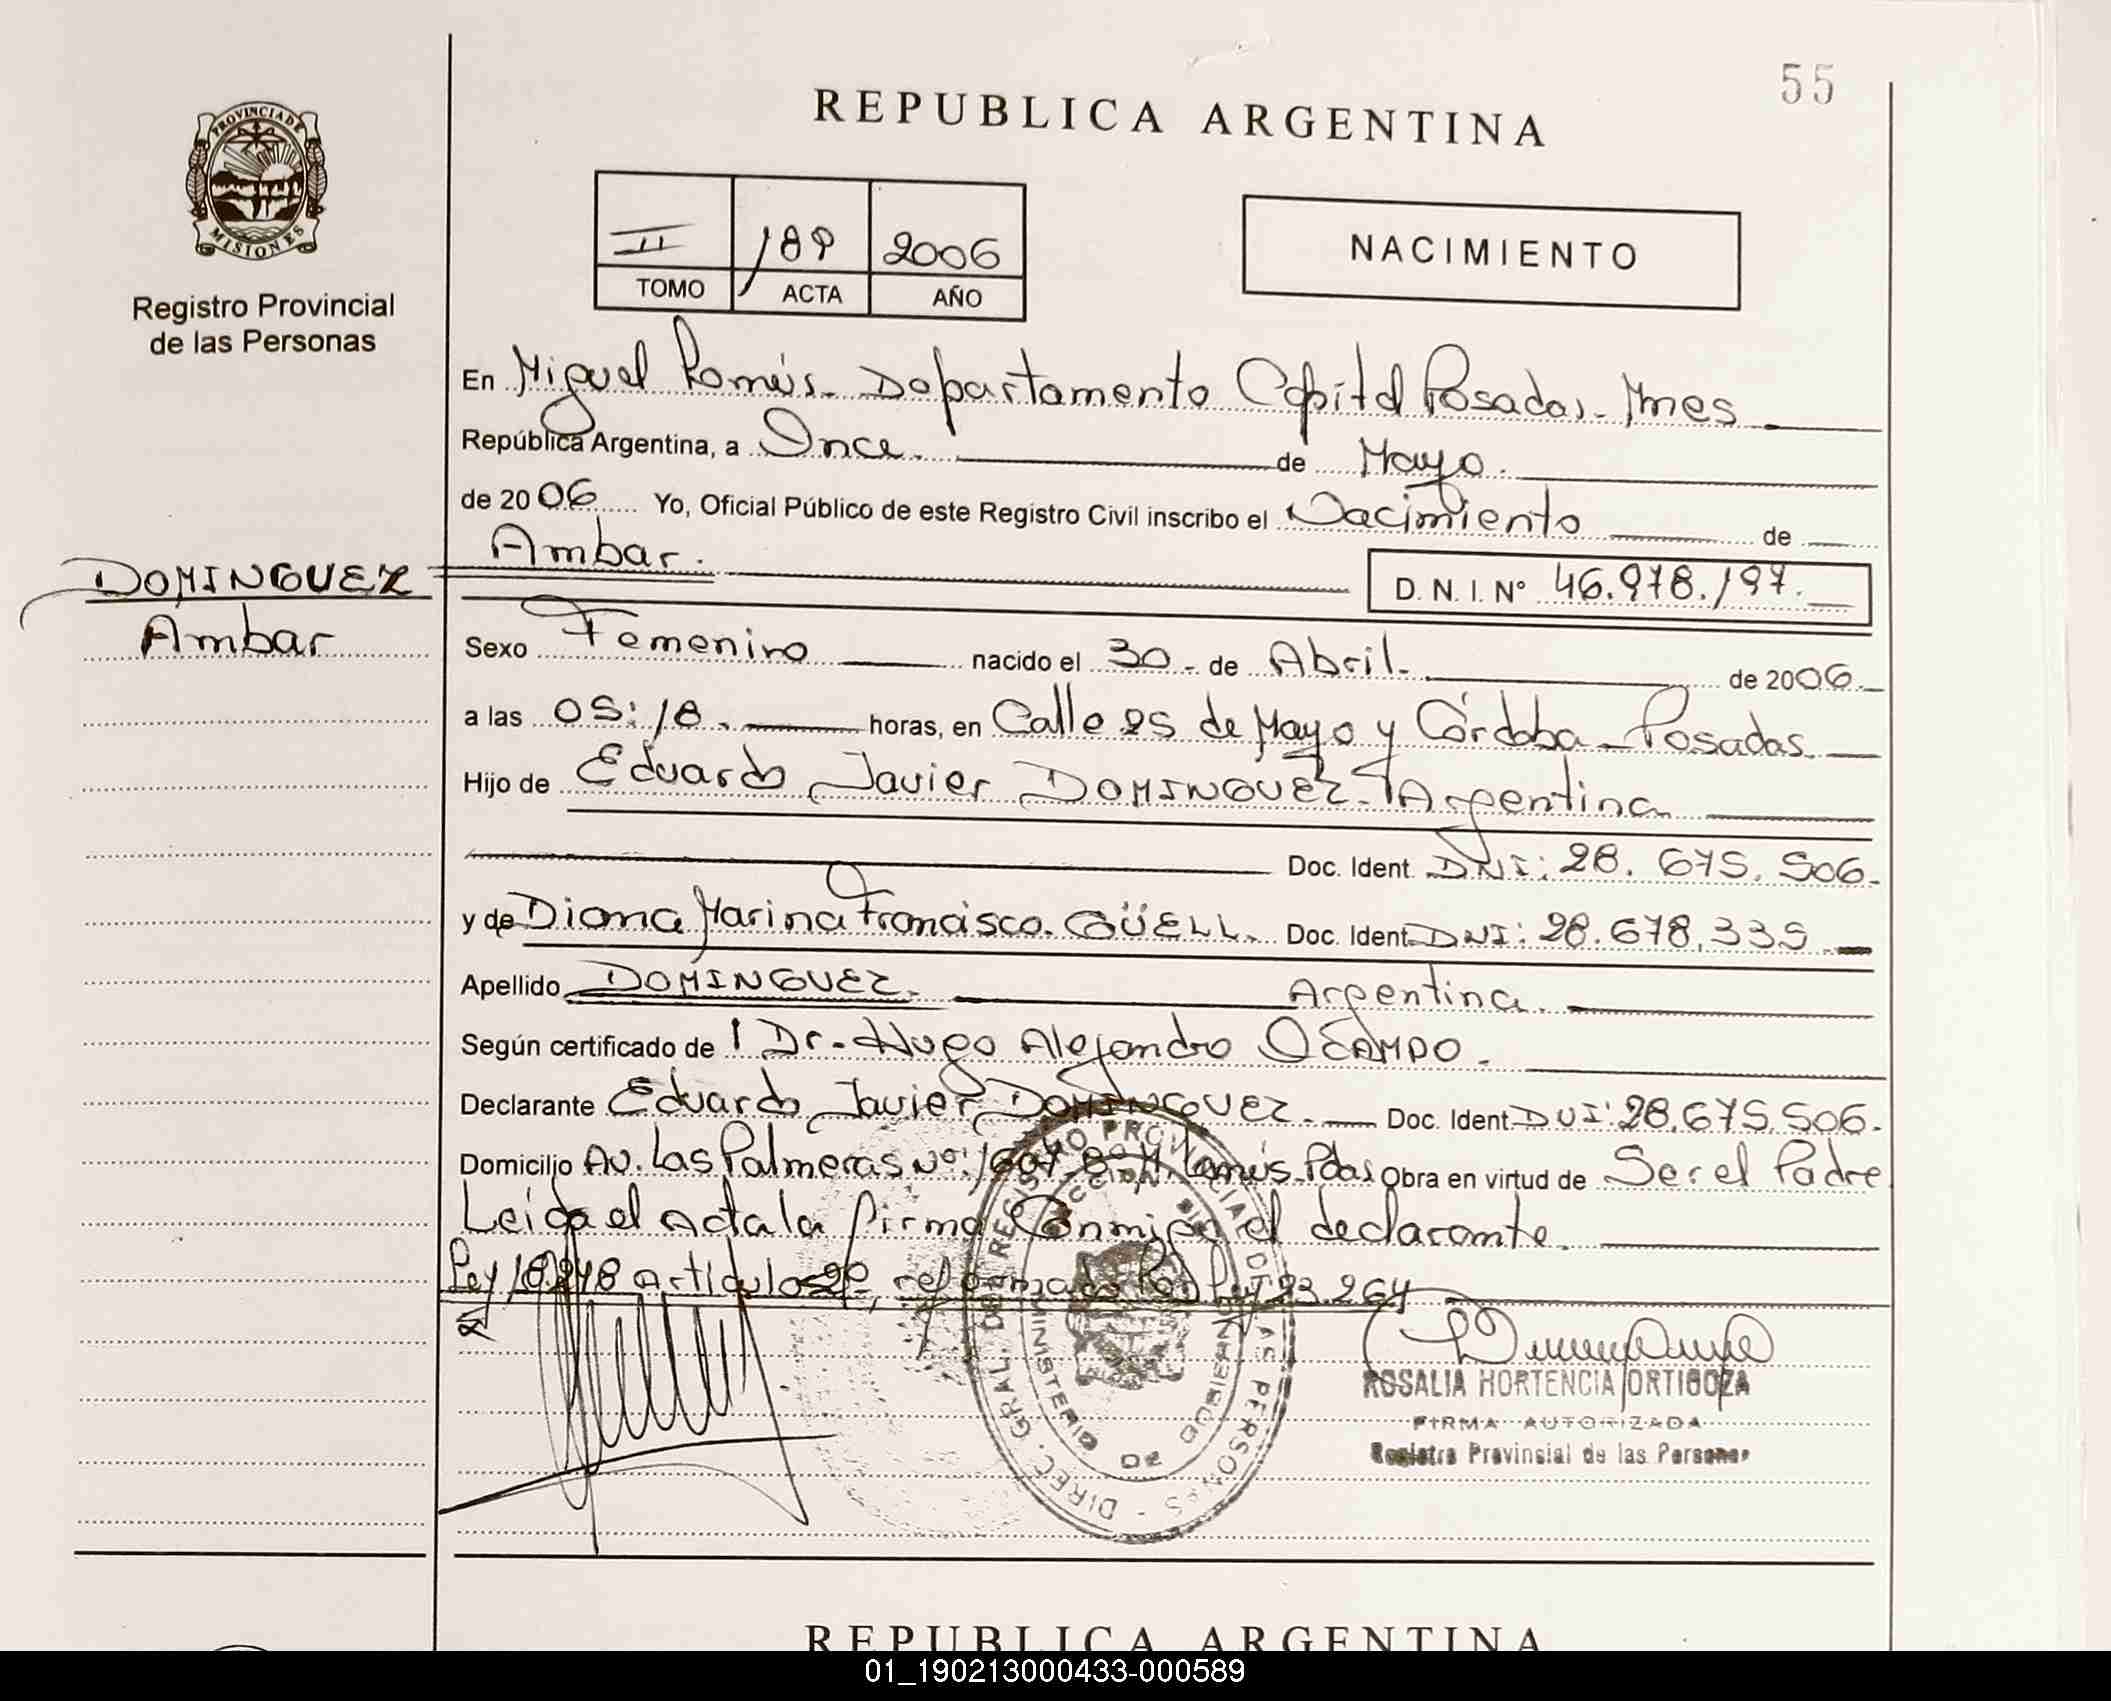 55
REPUBLICA ARGENTINA
PROVINCIA DE
MISIONES
Registro Provincial
de las Personas
II 189 2006
TOMO ACTA AÑO
NACIMIENTO
En Miguel Lanús. Departamento Capital Posadas - Mnes
República Argentina, a Once. de Mayo.
de 2006 Yo, Oficial Público de este Registro Civil inscribo el Nacimiento de
Ambar.
D. N. I. Nº 46.978.197.
DOMINGUEZ
Ambar
Sexo Femenino nacido el 30 - de Abril. de 2006.
a las 05:18. horas, en Calle 25 de Mayo y Córdoba - Posadas.
Hijo de Eduardo Javier DOMINGUEZ - Argentina
Doc. Ident. DNI: 28. 675. 506.
y de Diana Marina Francisco. GÜELL. Doc. Ident. DNI: 28.678.335.
Apellido DOMINGUEZ. Argentina.
Según certificado de Dr. Hugo Alejandro OCAMPO.
Declarante Eduardo Javier DOMINGUEZ. Doc. Ident. DNI: 28.675.506.
Domicilio Av. Las Palmeras Nº: Lanús. Pdas Obra en virtud de Ser el Padre
Leida el Acta la firma Conmigo el declarante.
Ley 18.248 artículos 2º, reformado Por Ley 23.264
DIREC. GRAL. DEL REGISTRO PROVINCIAL DE LAS PERSONAS
MINISTERIO DE GOBIERNO
ROSALIA HORTENCIA ORTIGOZA
FIRMA AUTORIZADA
Registro Provincial de las Personas
REPUBLICA ARGENTINA
01_190213000433-000589